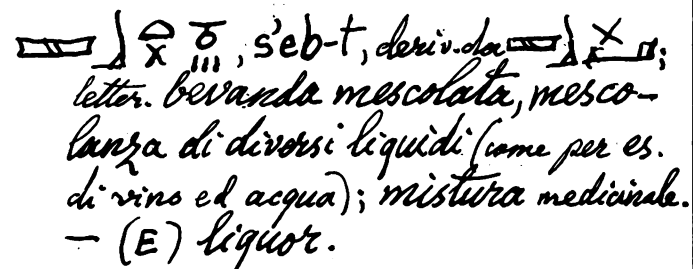 , s'eb-t, deriv. da ;
letter. bevanda mescolata, mesco-
lanza di diversi liquidi (come per es.
di vino ed acqua); mistura medicinale.
— (E) liquor.